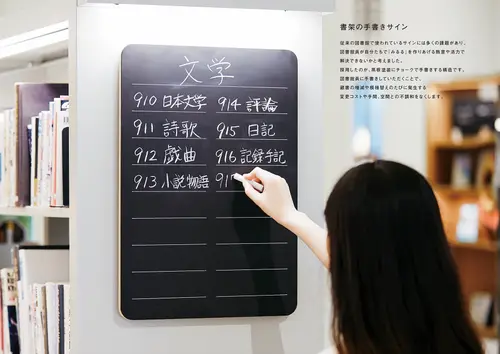 書架の手書きサイン
従来の図書館で使われているサインには多くの課題があり、
図書館員が自分たちで「みるる」を作りあげる熱意や活力で
解決できないかと考えました。
採用したのが、黒板塗装にチョークで手書きする構造です。
図書館員に手書きしていただくことで、
蔵書の増減や模様替えのたびに発生する
変更コストや手間、空間との不調和をなくします。
文学
910 日本文学
911 詩歌
912 戯曲
913 小説物語
914 評論
915 日記
916 記録手記
91